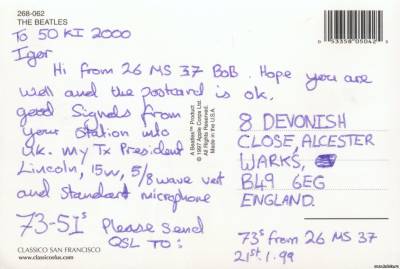 268-062
THE BEATLES
0 53358 05042
To 50 KI 2000
Igor
Hi from 26 MS 37 BoB. Hope you are
well and the postcard is ok.
good Signals from
your station into
UK. my Tx President
Lincoln, 15w, 5/8 wave vert
and Standard microphone
73-51s Please Send
QSL TO:
A Beatles™ Product
© 1997 Apple Corps Ltd.
All Rights Reserved.
Made in the U.S.A.
8 DEVONISH
CLOSE, ALCESTER
WARKS,
B49 6EG
ENGLAND.
CLASSICO SAN FRANCISCO
www.classicosf.com
73s from 26 MS 37
21st.1.99